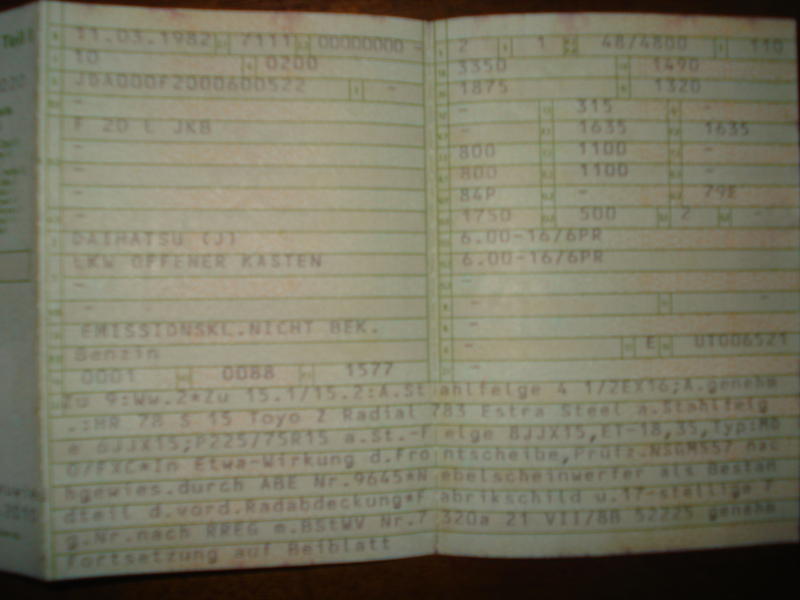 Teil I
11.03.1982 7111 00000000 -
10 0200
JDA000F2000600522 -
-
F 20 L JKB
-
-
-
-
DAIHATSU (J)
LKW OFFENER KASTEN
-
-
EMISSIONSKL.NICHT BEK.
Benzin
0001 0088 1577
2 1 48/4800 110
3350 1490
1875 1320
- 315 -
- 1635 1635
800 1100 -
800 1100 -
84P - 79E
1750 500 2 -
6.00-16/6PR
6.00-16/6PR
-
- -
-
- E UT006521
-
Zu 9:Ww.2*Zu 15.1/15.2:A.St ahlfelge 4 1/2EX16;A.genehm
.:HR 78 S 15 Toyo Z Radial 783 Estra Steel a.Stahlfelg
e 6JJX15;P225/75R15 a.St.-F elge 8JJX15,ET-18,35,Typ:MO
O/FXC*In Etwa-Wirkung d.Fro ntscheibe,Prüfz.NSGM557 nac
hgewies.durch ABE Nr.9645*N ebelscheinwerfer als Bestan
dteil d.vord.Radabdeckung*F abrikschild u.17-stellige F
g.Nr.nach RREG m.BStWV Nr.7 320a 21 VII/88 52225 genehm
Fortsetzung auf Beiblatt